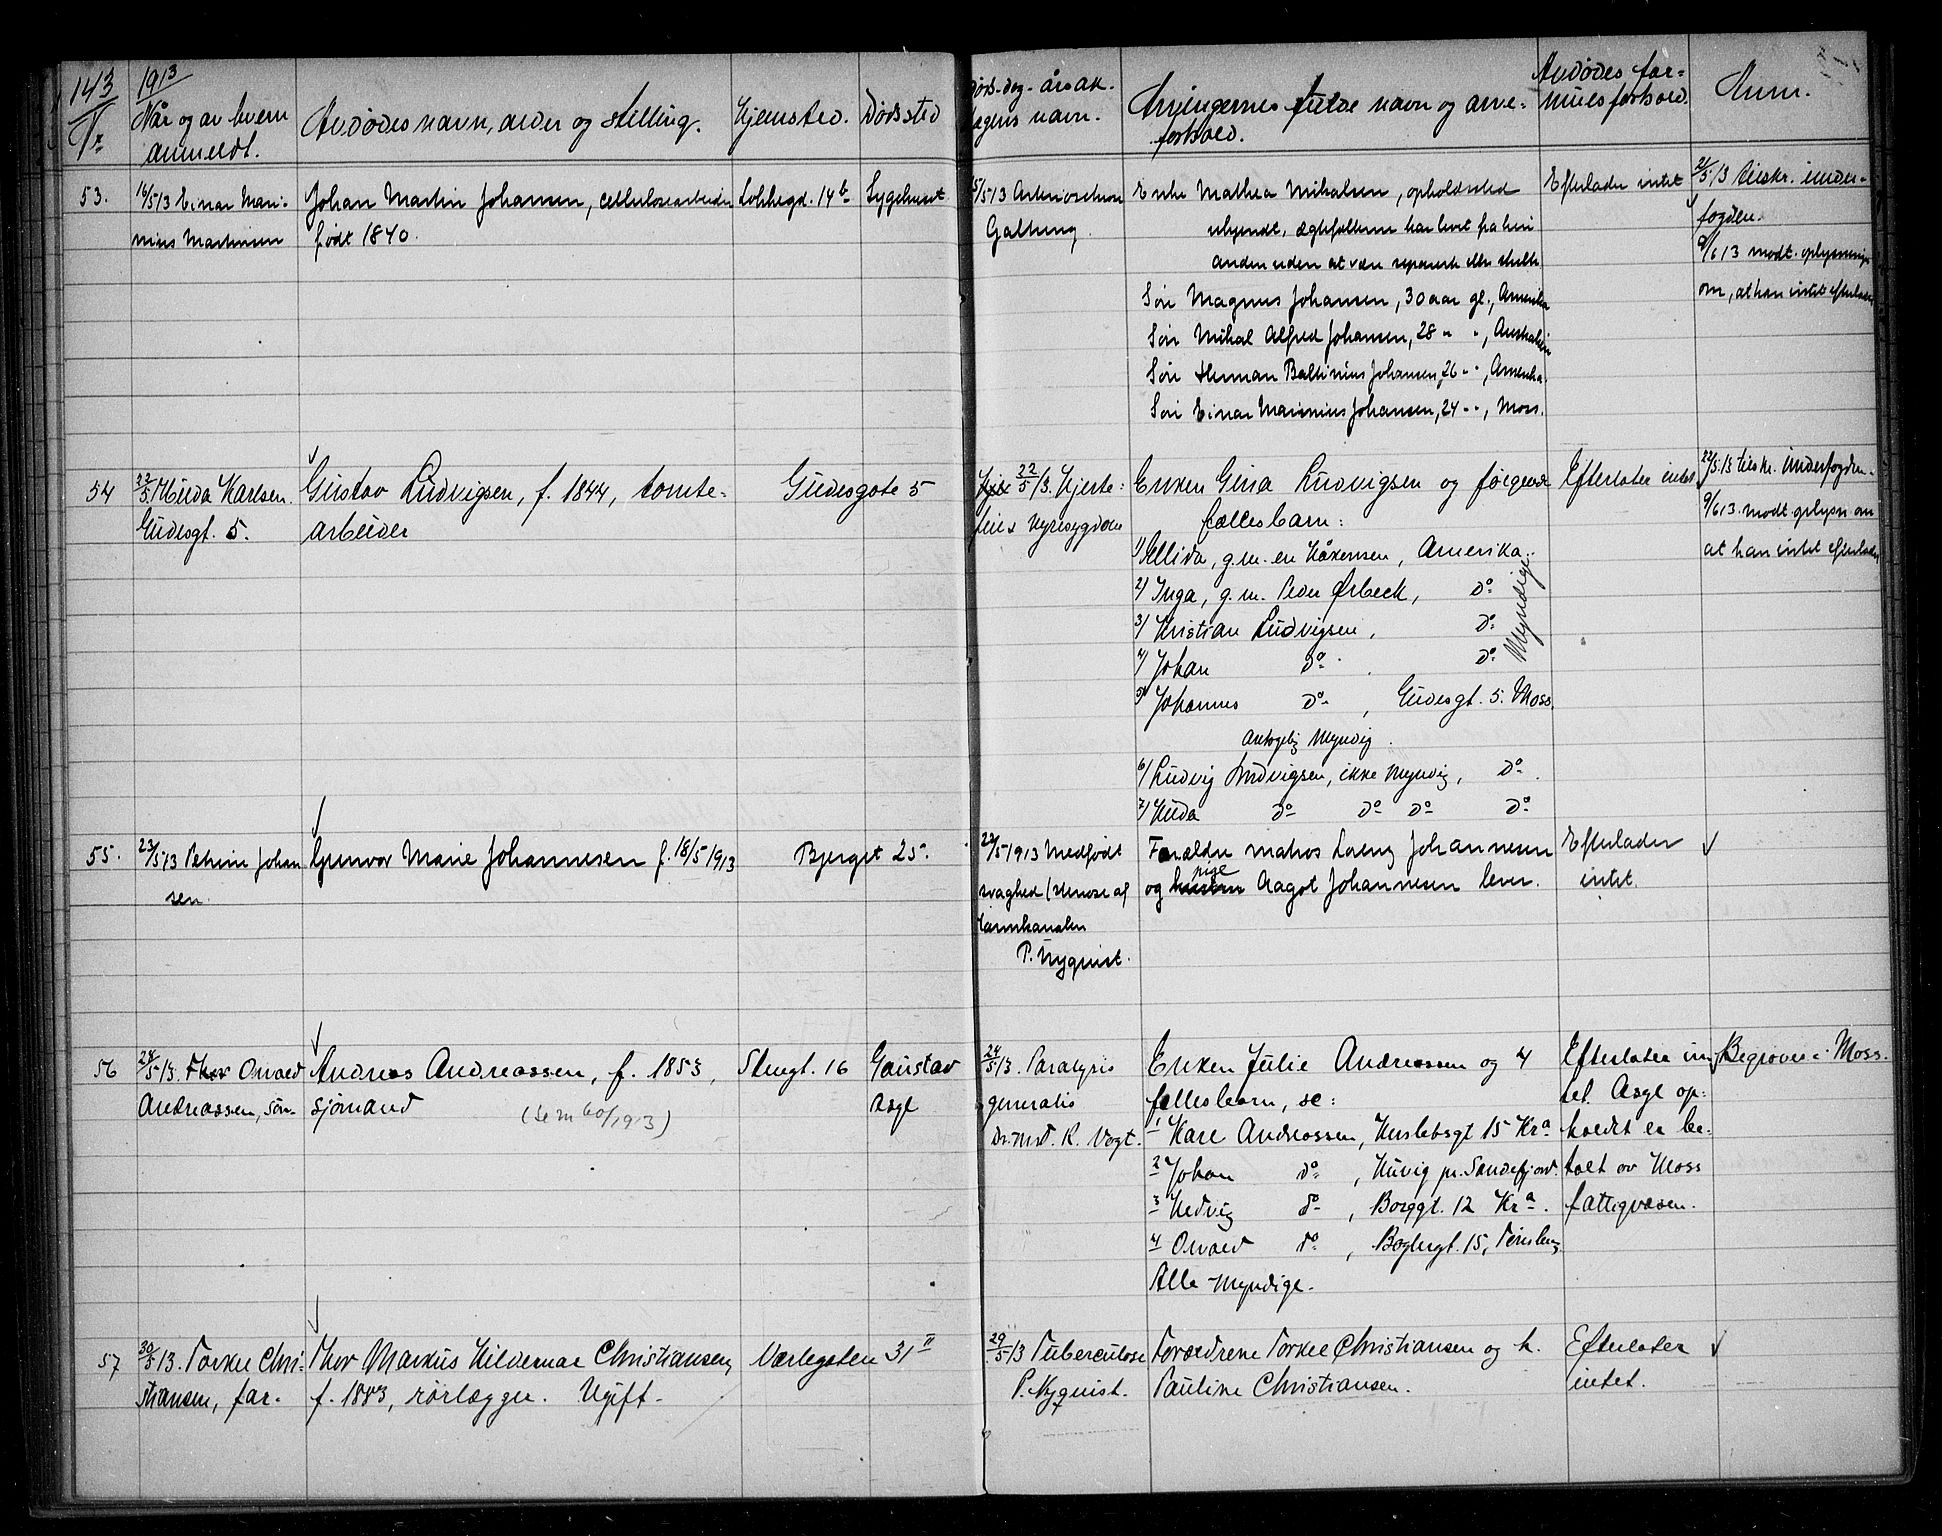 143
1913
Nr
Når og av hvem
anmeldt.
Avdødes navn, alder og stilling.
Hjemsted.
Dødssted
Døds-dag - årsak.
Lægens navn.
Arvingernes fulde navn og arve-
forhold.
Avdødes for-
muesforhold.
Anm.
53.
16/5 13 Einar Mari-
nius Martinsen
Johan Martin Johansen, cellulosearbeider
født 1840.
14b
Sygehuset
15/5 13
Galtung
Enke Mathea Mihalsen, opholdssted
ubekjendt, ægtefællerne har levet fra hin
anden uden at være separerte eller skilte
Søn Magnus Johansen, 30 aar gl., Amerika
Søn Mihal Alfred Johansen, 28 " ", Australien
Søn Herman Baltinius Johansen, 26 " ", Amerika.
Søn Einar Marinius Johansen, 24 " ", Moss.
Efterlader intet
21/5 13 tilskr. under-
fogden.
9/6 13 modt. oplysning
om, at han intet efterlader
54
22/5 13 Hilda Karlsen.
Gudesgt. 5.
Gustav Ludvigsen, f. 1844, tomte-
arbeider
Gudesgate 5
22/5 13. Hjerte-
feil & Nyresygdom
Enken Gina Ludvigsen og følgende
fællesbarn:
1/ Ellida, g.m. en Håkensen, Amerika.
2/ Inga, g.m. Peder Ørbeck, do
3/ Kristian Ludvigsen, do
4/ Johan do do
Myndige
5/ Johannes do, Gudesgt. 5. Moss.
Antagelig Myndig.
6/ Ludvig Ludvigsen, ikke Myndig, do.
7/ Hilda do do do do
Efterlater intet
22/5 13 tilskr. Underfogden.
9/6 13 modt. oplysn om
at han intet efterlader
55.
23/5 13 Petrine Johan
sen.
Gunvor Marie Johannesen f. 18/5 1913
Bjerget 25.
22/5 1913 Medfødt
svaghed (stenose af
tarmkanalen
P. Nyquist.
Forældre matros Lorenz Johannesen
og pige Aagot Johannesen lever.
Efterlader
intet.
56
24/5 13. Thor Orvald
Andreassen, søn.
Andreas Andreassen, f. 1853,
sjømand
(Se nr 60/1913)
Stengt. 16
Gaustad
Asyl
24/5 13. Paralysis
generalis
Dr. med. R. Vogt.
Enken Julie Andreassen og 4
fellesbarn, se:
1 Kare Andreassen, Herslebsgt 15 Kra
2 Johan do, Huvig pr. Sandefjord.
3 Hedvig do, Borggt. 12 Kra.
4 Orvald do, Baglergt. 15, Tønsberg.
Alle Myndige.
Efterlater in-
tet. Asyl op-
holdet er be-
talt av Moss
fattigvæsen.
Begraves i Moss.
57
30/5 13. Torkel Chri-
stiansen, far.
Thor Markus Hildemar Christiansen,
f. 1883, rørlægger. Ugift.
Værlegaten 31 II
29/5 13 Tuberculose
P. Nyquist.
Forældrene Torkel Christiansen og h.
Pauline Christiansen.
Efterlater
intet.